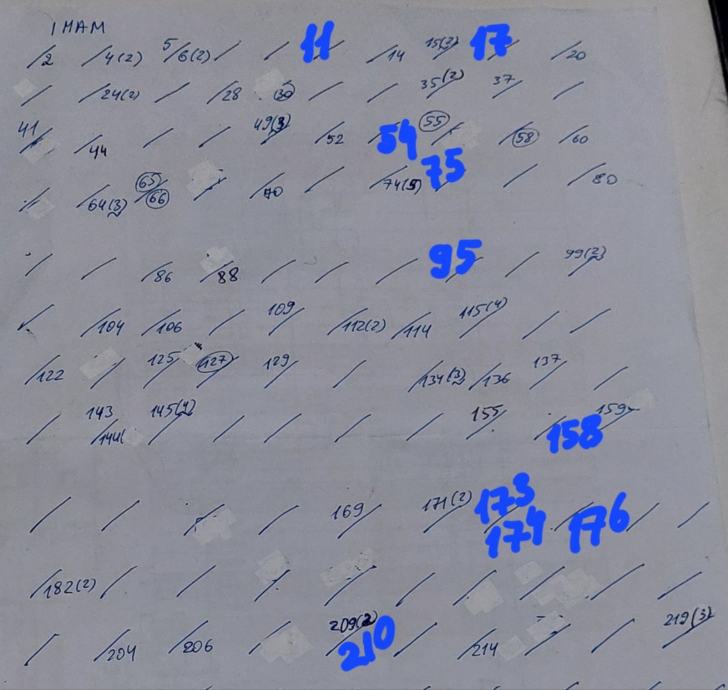 IMAM
/2 /4(2) 5/6(2) / / 11/ /14 15(2)/ 17/ /20
/ /24(2) / /28 /30 / / 35(2)/ 37/ /
41/ /44 / / 49(3)/ /52 54/ 55/ /58 /60
/ /64(3) 65/66 / /70 / /74(5) 75/ / / /80
/ / /86 /88 / / / 95/ / 99(2)/
/ /104 /106 / 109/ /112(2) /114 115(4)/ / /
/122 / 125/ 127/ 129/ / /134(3) /136 137/ /
/ 143/144( 145(4)/ / / / / 155/ /158 159/
/ / / / 169/ 171(2)/ 173/174 /176 / /
/182(2) / / / / / / / / /
/ /204 /206 / 209(2)/210 / /214 / / 219(3)/